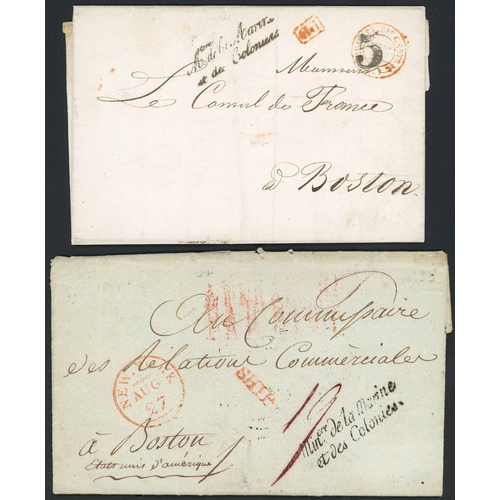 Mère de la Marine
et des Colonies
5
Monsieur
Le Consul de France
à Boston
Au Commissaire
des Relations Commerciales
NEW-YORK
AUG
27
SHIP
à Boston
Etats unis d'amérique
Minère de la Marine
et des Colonies.